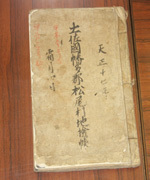 天正十七年
土佐國幡多郡松尾村地檢帳